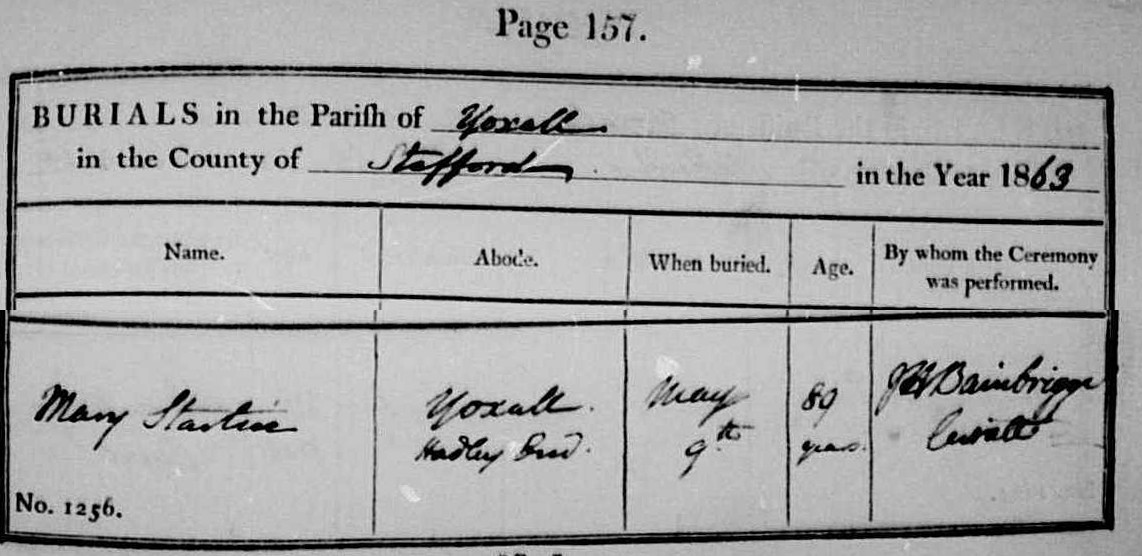 Page 157.
BURIALS in the Pariſh of Yoxall
in the County of Stafford in the Year 1863
Name. Abode. When buried. Age. By whom the Ceremony was performed.
Mary Startin Yoxall. May 89 JH Bainbrigge
Hadley End. 9th years. Curate
No. 1256.